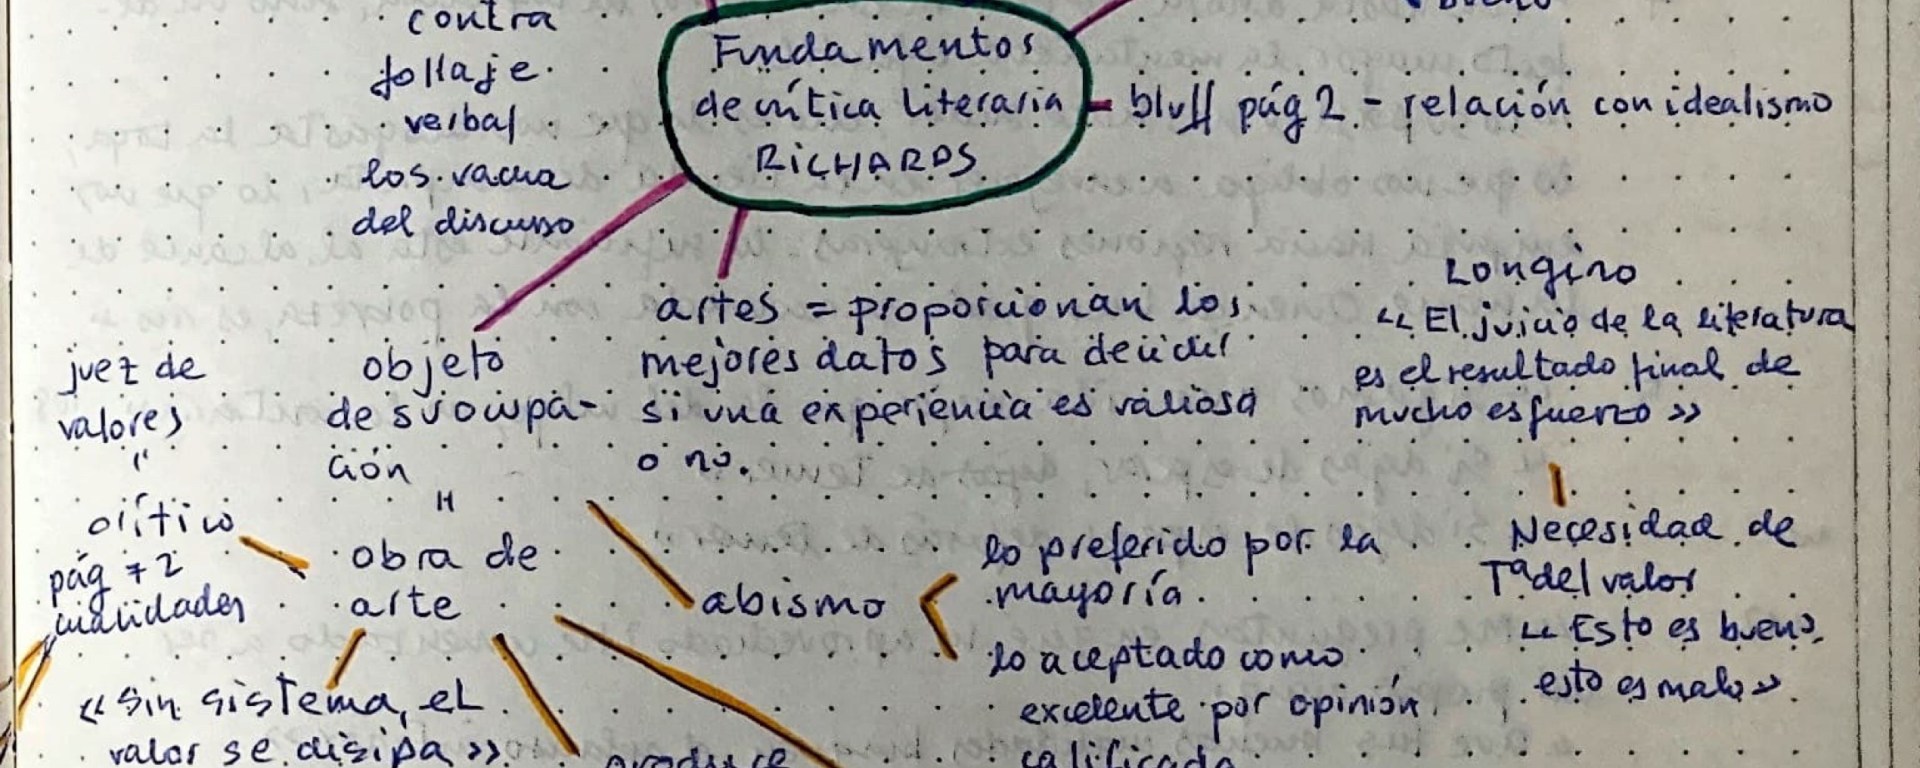 contra
follaje
verbal
los vacua
del discurso
Fundamentos
de crítica literaria
RICHARDS
bluff pág 2 - relación con idealismo
artes = proporcionan los
mejores datos para decidir
si una experiencia es valiosa
o no.
Longino
"El juicio de la literatura
es el resultado final de
mucho esfuerzo"
Necesidad de
Tª del valor
"Esto es bueno,
esto es malo".
juez de
valores
"
crítico
pág 72
cualidades
objeto
de su ocupa-
ción
"
obra de
arte
abismo
lo preferido por la
mayoría.
lo aceptado como
excelente por opinión
calificada
"sin sistema, el
valor se disipa".
produce